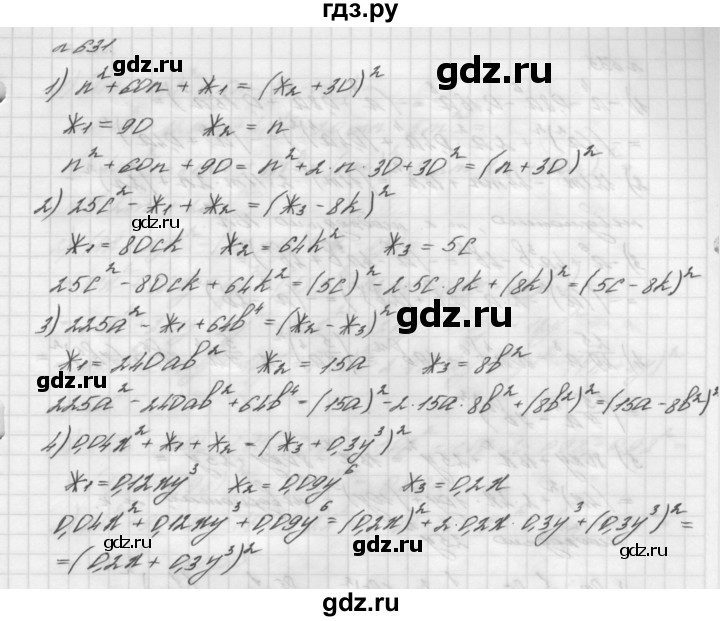 гдз.рф
n 631
1) n² + 60n + *₁ = (*₂ + 30)²
gdz.ru
gdz.ru
*₁ = 90   *₂ = n
n² + 60n + 90 = n² + 2·n·30 + 30² = (n + 30)²
2) 25c² - *₁ + *₂ = (*₃ - 8k)²
gdz.ru
gdz.ru
*₁ = 80ck   *₂ = 64k²   *₃ = 5c
25c² - 80ck + 64k² = (5c)² - 2·5c·8k + (8k)² = (5c - 8k)²
3) 225a² - *₁ + 64b⁴ = (*₂ - *₃)²
gdz.ru
*₁ = 240ab²   *₂ = 15a   *₃ = 8b²
gdz.ru
gdz.ru
225a² - 240ab² + 64b⁴ = (15a)² - 2·15a·8b² + (8b²)² = (15a - 8b²)²
4) 0,04x² + *₁ + *₂ = (*₃ + 0,3y³)²
gdz.ru
*₁ = 0,12xy³   *₂ = 0,09y⁶   *₃ = 0,2x
0,04x² + 0,12xy³ + 0,09y⁶ = (0,2x)² + 2·0,2x·0,3y³ + (0,3y³)² =
= (0,2x + 0,3y³)²
gdz.ru
gdz.ru
gdz.ru